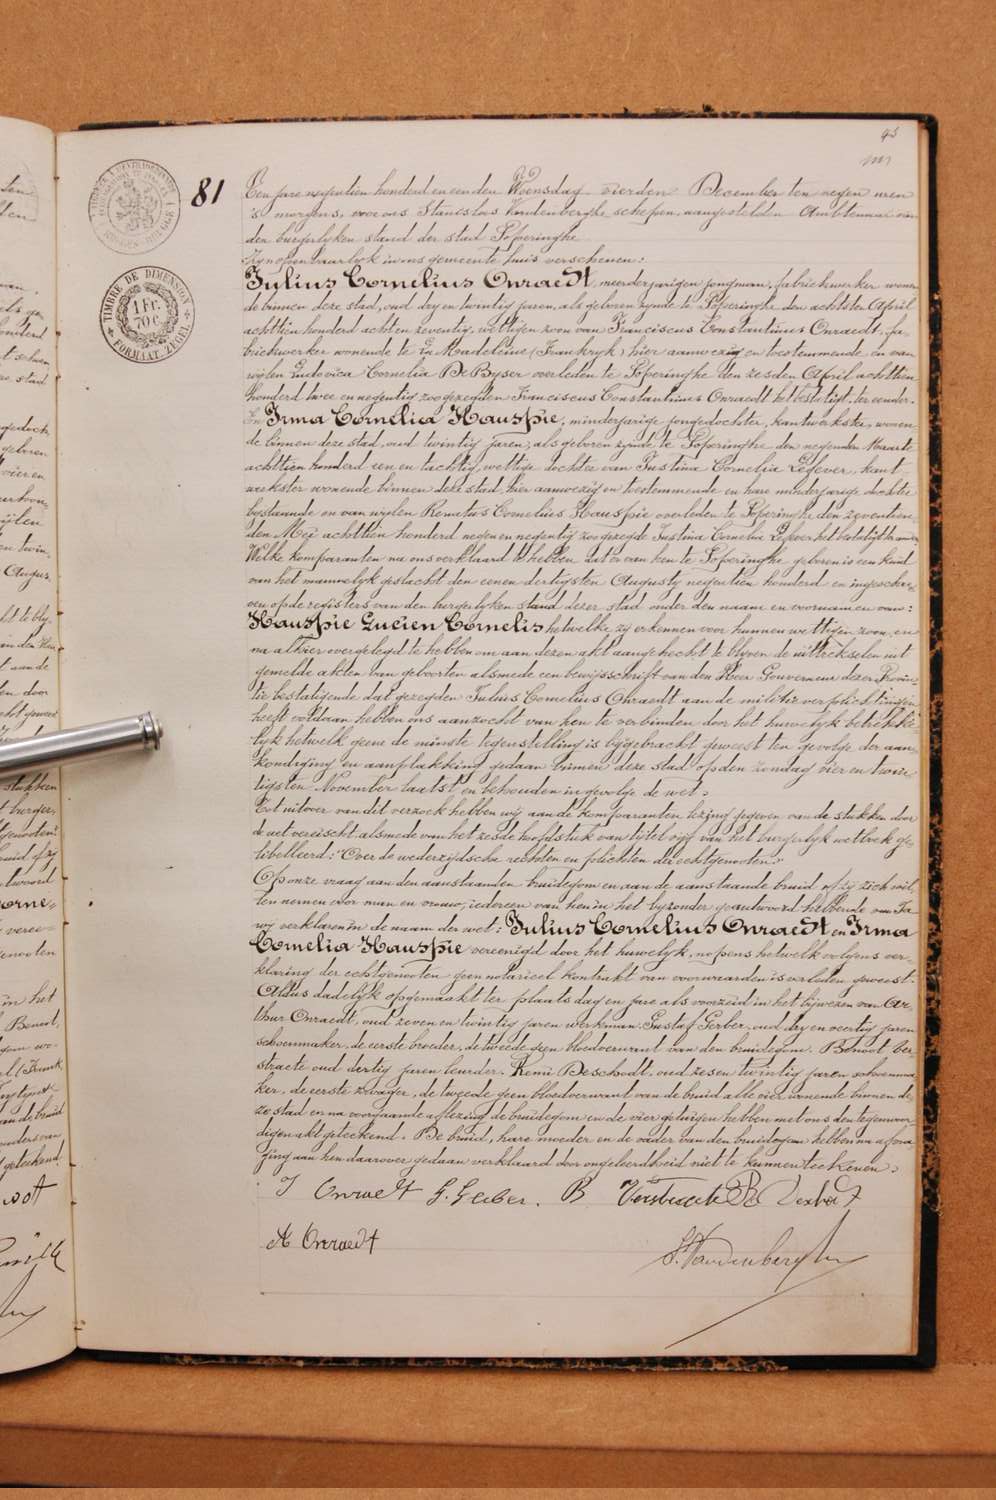 45
81
TIMBRE DE DIMENSION
1 Fr.
70 c
FORMAAT-ZEGEL
Een jare negentien honderd en een den Woensdag vierden December ten negen uren
's morgens, voor ons Stanislas Vandenberghe schepen, aangestelden Ambtenaar van
den burgerlyken stand der stad Poperinghe
Zyn openbaarlyk in ons gemeente huis verschenen:
Julius Cornelius Onraedt, meerderjarigen jongman, fabriekwerker wonen
de binnen deze stad, oud dry en twintig jaren, als geboren zynde te Poperinghe den achtsten April
achttien honderd acht en zeventig, wettigen zoon van Franciscus Constantinus Onraedt, fa
briekwerker wonende te La Madeleine (Frankryk) hier aanwezig en toestemmende, en van
wylen Ludovica Cornelia De Byser overleden te Poperinghe den zesden April achttien
honderd twee en negentig zoo gezegden Franciscus Constantinus Onraedt het bestatigt, ter eender.
En Irma Cornelia Hauspie, minderjarige jongedochter, kantwerkster, wonen
de binnen deze stad, oud twintig jaren, als geboren zynde te Poperinghe den negenden Maarte
achttien honderd een en tachtig, wettige dochter van Justina Cornelia Lefever, kant
werkster wonende binnen deze stad, hier aanwezig en toestemmende en hare minderjarige dochter
bystaande en van wylen Renatus Cornelius Hauspie overleden te Poperinghe den zeventien
den Mei achttien honderd negen en negentig zoo gezegde Justina Cornelia Lefever het bestatigt ter andere
Welke komparanten na ons verklaard te hebben dat er van hen te Poperinghe geboren is een kind
van het mannelyk geslacht den eenen dertigsten Augusty negentien honderd en ingeschre
ven op de registers van den burgerlyken stand dezer stad onder den naam en voornamen van:
Hauspie Lucien Cornelis hetwelke zy erkennen voor hunnen wettigen zoon, en
na alhier overgelegd te hebben om aan dezen akt aangehecht te blyven de uittreksels uit
gemelde akten van geboorten alsmede een bewysschrift van den Heer Gouverneur dezer Provin-
tie bestatigende dat gezegden Julius Cornelius Onraedt aan de militie verplichtingen
heeft voldaan hebben ons aanzocht van hen te verbinden door het huwelyk betrekke-
lyk hetwelk geene de minste tegenstelling is bygebracht geweest ten gevolge der aan-
kondiging en aanplakking gedaan binnen deze stad op den zondag vier en twin-
tigsten November laatst en behouden ingevolge de wet.
Tot uitvoer van dit verzoek hebben wy aan de komparanten lezing gegeven van de stukken door
de wet vereischt alsmede van het zesde hoofdstuk van tytel vyf van het burgerlyk wetboek ge-
libelleerd: "Over de wederzydsche rechten en plichten der echtgenooten."
Op onze vraag aan den aanstaanden bruidegom en aan de aanstaande bruid of zy zich wil-
len nemen voor man en vrouw, iedereen van hen in het byzonder geantwoord hebbende van Ja
wy verklaren in de naam der wet: Julius Cornelius Onraedt en Irma
Cornelia Hauspie vereenigd door het huwelyk, nopens hetwelk volgens ver-
klaring der echtgenooten geen notarieel kontrakt van voorwaarden is verleden geweest.
Aldus dadelyk opgemaakt ter plaats dag en jare als voorzeid in het bywezen van Ar-
thur Onraedt, oud zeven en twintig jaren werkman, Gustaf Gerber, oud dry en veertig jaren
schoenmaker, de eerste broeder, de tweede geen bloedverwant van den bruidegom. Benoot Ver
straete oud dertig jaren leurder. Remi Deschodt, oud zes en twintig jaren schoenma
ker, de eerste zwager, de tweede geen bloedverwant van de bruid alle vier wonende binnen de-
ze stad en na voorgaande aflezing de bruidegom en de vier getuigen hebben met ons den tegenwoor-
digen akt geteekend. De bruid, hare moeder en de vader van den bruidegom hebben na afvra
ging aan hen daarover gedaan verklaard door ongeleerdheid niet te kunnen teekenen.
J Onraedt G. Gerber. B Verstraete
A Onraedt
S. Vandenberghe